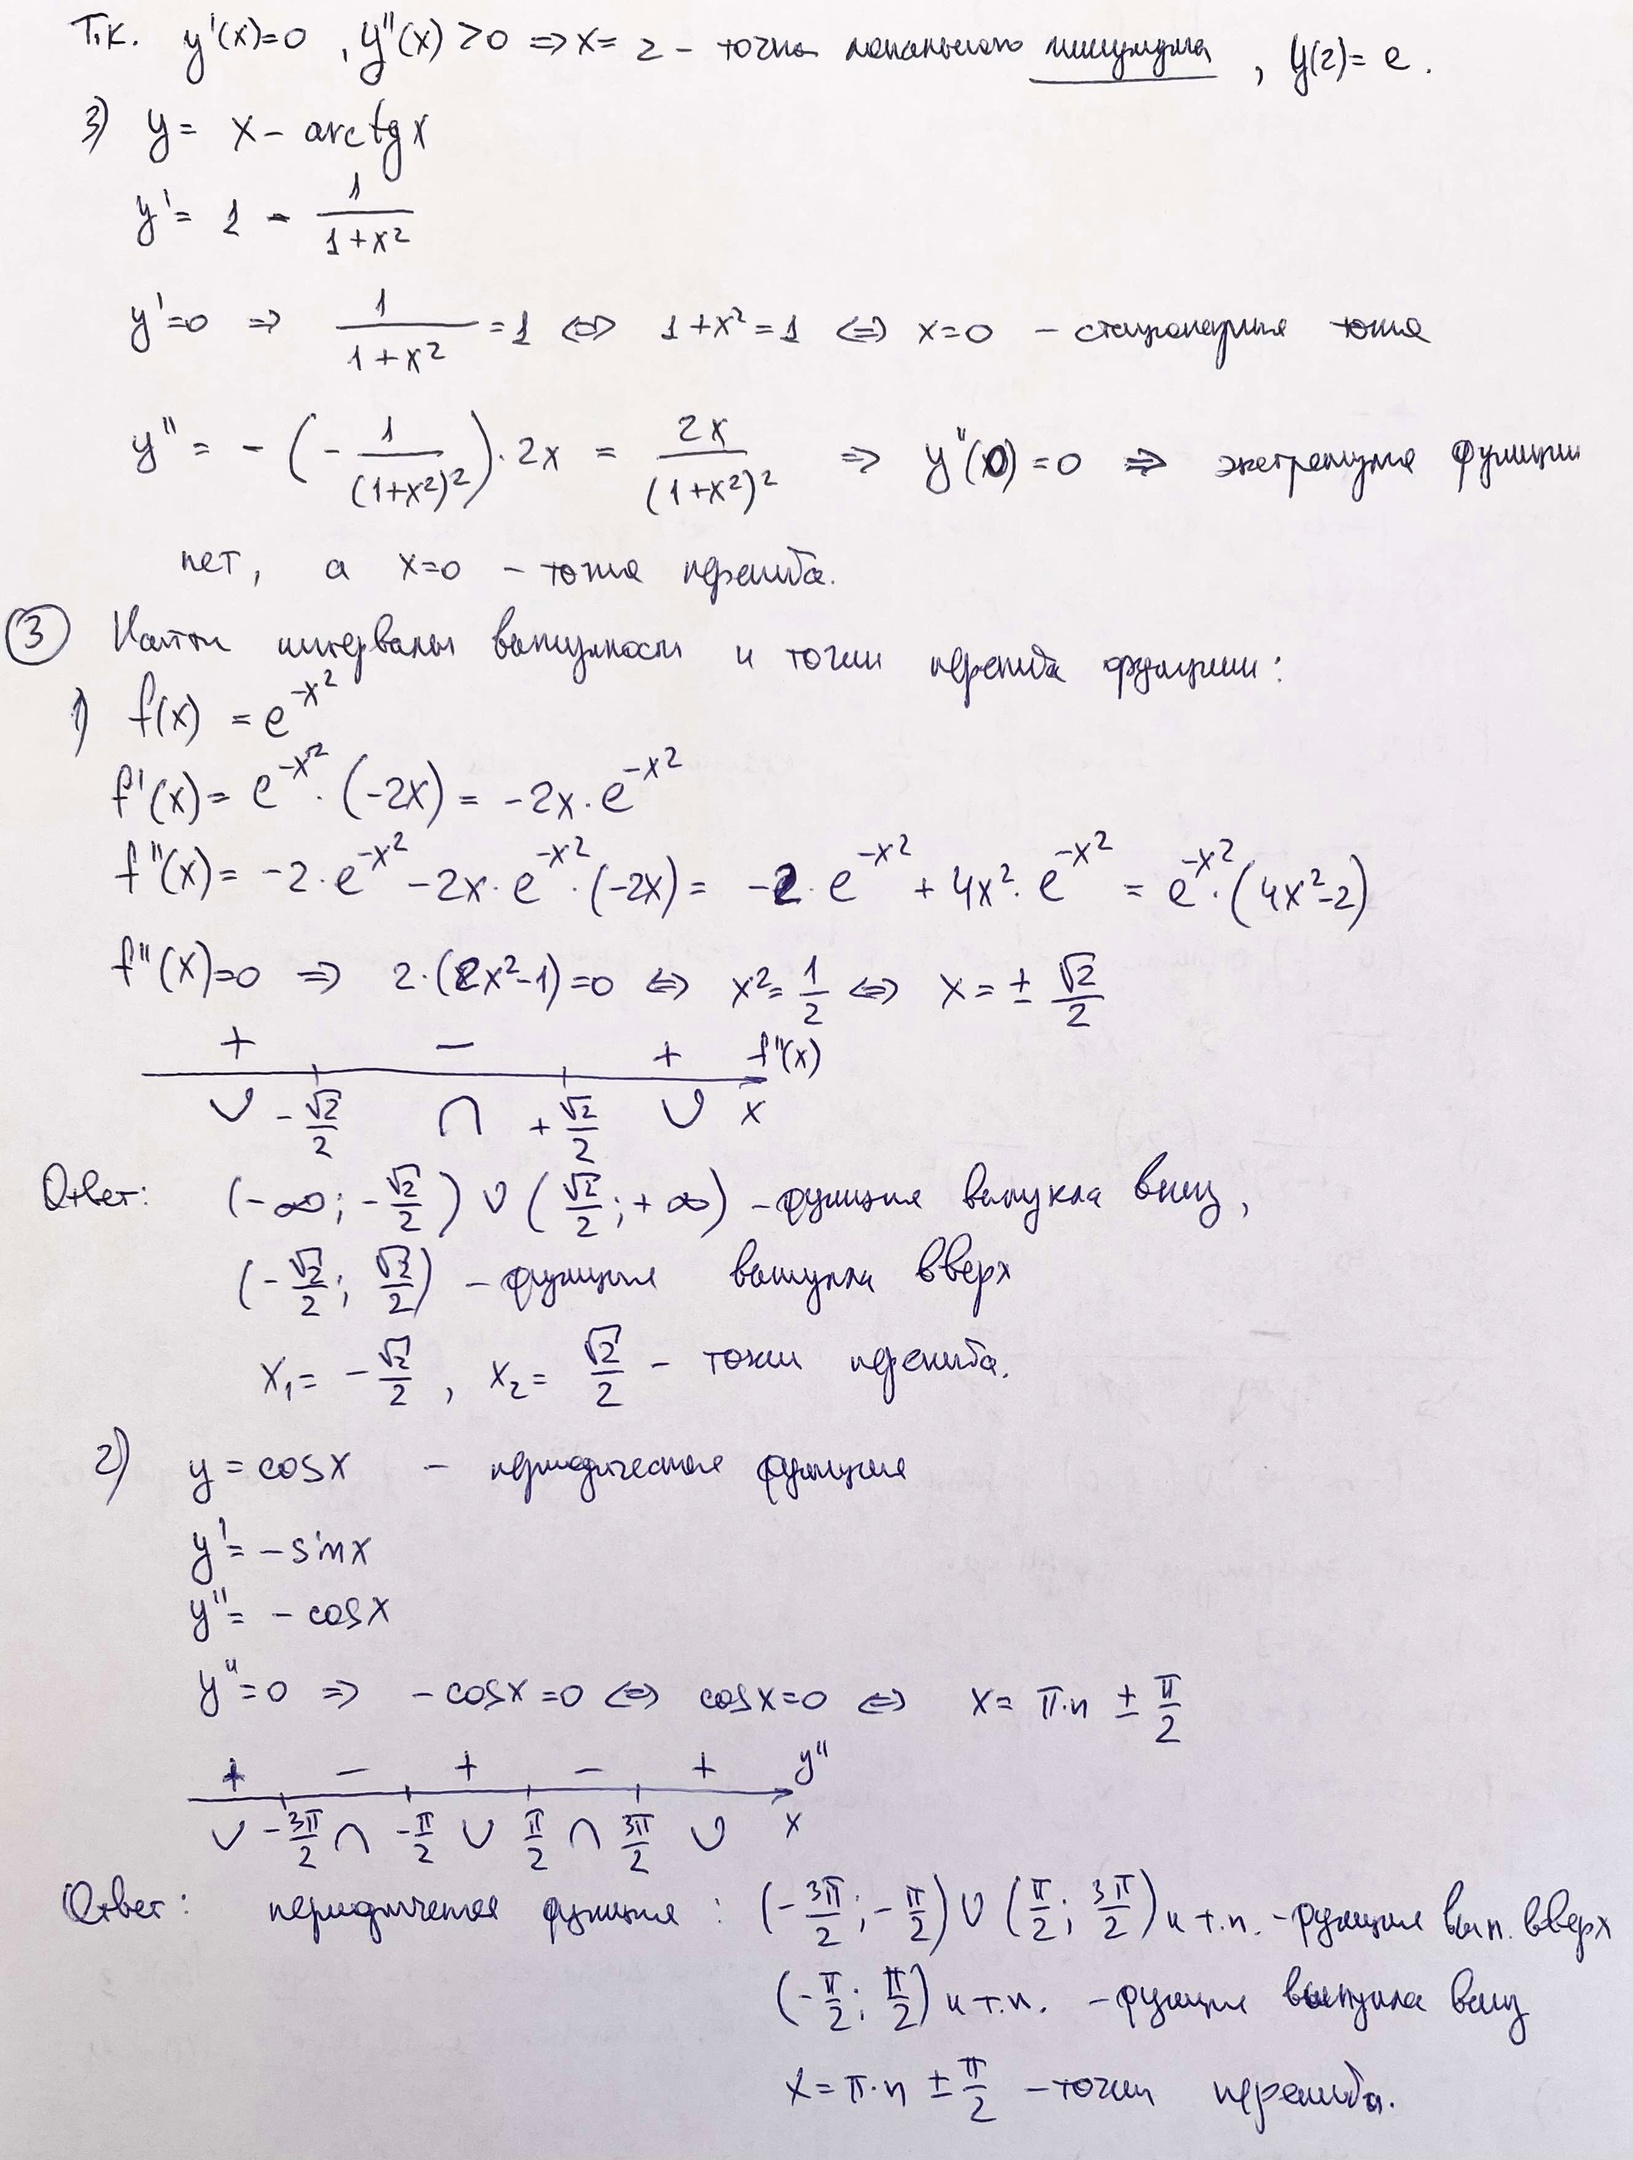 Т.к. y'(x)=0 , y''(x) >0 ⇒ x= 2 - точка локального минимума , y(2)= e .
3) y = x - arctg x
y' = 1 - 1/(1+x²)
y'=0 ⇒ 1/(1+x²) = 1 ⇔ 1+x² = 1 ⇔ x=0 - стационарная точка
y'' = - (- 1/(1+x²)²) · 2x = 2x/(1+x²)² ⇒ y''(0) = 0 ⇒ экстремума функции
нет, а x=0 - точка перегиба.
③ Найти интервалы выпуклости и точки перегиба функции:
1) f(x) = e^(-x²)
f'(x) = e^(-x²) · (-2x) = -2x · e^(-x²)
f''(x) = -2 · e^(-x²) - 2x · e^(-x²) · (-2x) = -2 · e^(-x²) + 4x² · e^(-x²) = e^(-x²) · (4x²-2)
f''(x)=0 ⇒ 2·(2x²-1)=0 ⇔ x² = 1/2 ⇔ x = ± √2/2
+ − + f''(x)
∪ -√2/2 ∩ +√2/2 ∪ x
Ответ: (-∞; -√2/2) ∪ (√2/2; +∞) - функция выпукла вниз,
(-√2/2; √2/2) - функция выпукла вверх
x₁ = -√2/2 , x₂ = √2/2 - точки перегиба.
2) y = cosx - периодическая функция
y' = - sinx
y'' = - cosx
y''=0 ⇒ -cosx=0 ⇔ cosx=0 ⇔ x= π·n ± π/2
+ − + − + y''
∪ -3π/2 ∩ -π/2 ∪ π/2 ∩ 3π/2 ∪ x
Ответ: периодическая функция : (-3π/2; -π/2) ∪ (π/2; 3π/2) и т.п. - функция вып. вверх
(-π/2; π/2) и т.п. - функция выпукла вниз
x = π·n ± π/2 - точки перегиба.